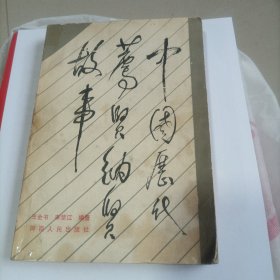 中国历代
荐贤纳贤
故事
编著
湖南人民出版社